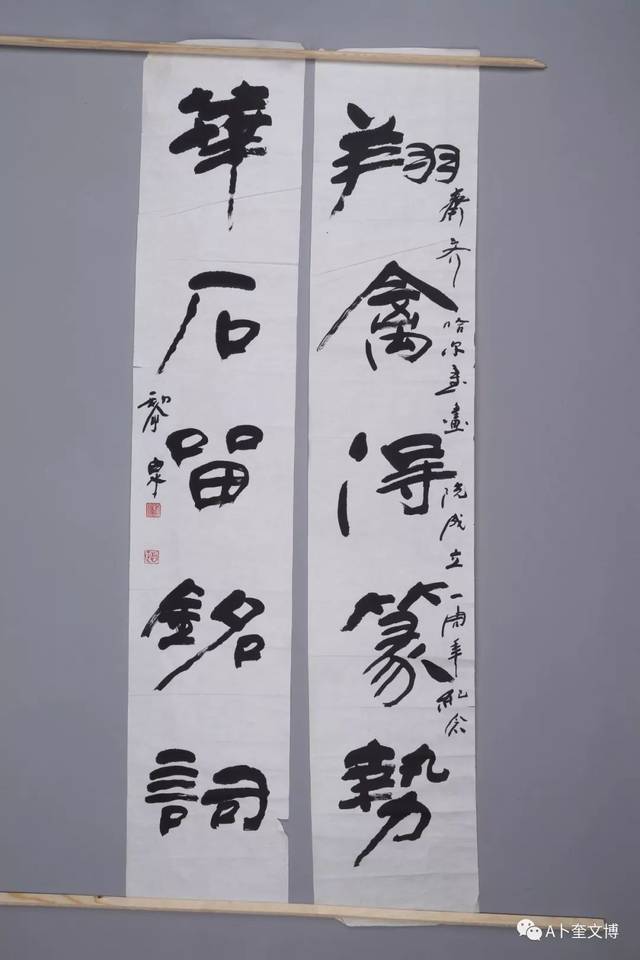 翔禽得篆勢
齊齐哈尔書畫院成立一周年紀念
華石留銘詞
黎泉
A卜奎文博